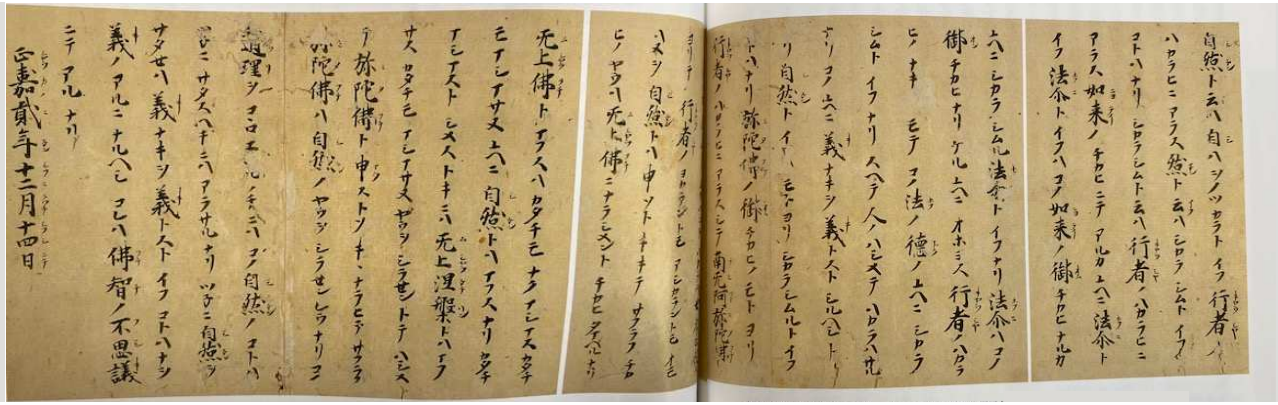 自然ト云ハ自ハヲノツカラトイフ行者ノ
ハカラヒニアラス然ト云ハシカラシムトイフ
コトハナリシカラシムト云ハ行者ノハカラヒニ
アラス如来ノチカヒニテアルカユヘニ法尓ト
イフ法尓トイフハコノ如来ノ御チカヒナルカ
ユヘニシカラシムル法尓トイフナリ法尓ハコノ
御チカヒナリケルユヘニオホヨス行者ノハカラ
ヒノナキモテコノ法ノ徳ノユヘニシカラ
シムトイフナリスヘテ人ノハシメテハカラハサル
ナリコノユヘニ義ナキヲ義トストシルヘシト
リ自然トイフハモトヨリシカラシムルトイフ
コトハナリ弥陀佛ノ御チカヒノモトヨリ
行者ノハカラヒニアラスシテ南无阿弥陀佛
ヨリテ行者ノヨカラントモアシカラントモオモ
ハヌヲ自然トハ申ソトキヽテサフラフチカ
ヒノヤウハ无上佛ニナラシメントチカヒタマヘルナリ
无上佛トマフスハカタチモナクマシマスカタチ
モマシマサヌユヘニ自然トハマフスナリカタチ
マシマストシメストキニハ无上涅槃トハマフ
サスカタチモマシマサヌヤウヲシラセントテハシメ
テ弥陀佛ト申ストソキヽナラヒテサフラフ
弥陀佛ハ自然ノヤウヲシラセンレウナリコノ
道理ヲコヽロエツルノチニハコノ自然ノコトハ
ツネニサタスヘキニハアラサルナリツネニ自然ヲ
サタセハ義ナキヲ義トストイフコトハナヲ
義ノアルニナルヘシコレハ佛智ノ不思議
ニテアルナリ
正嘉貳年十二月十四日